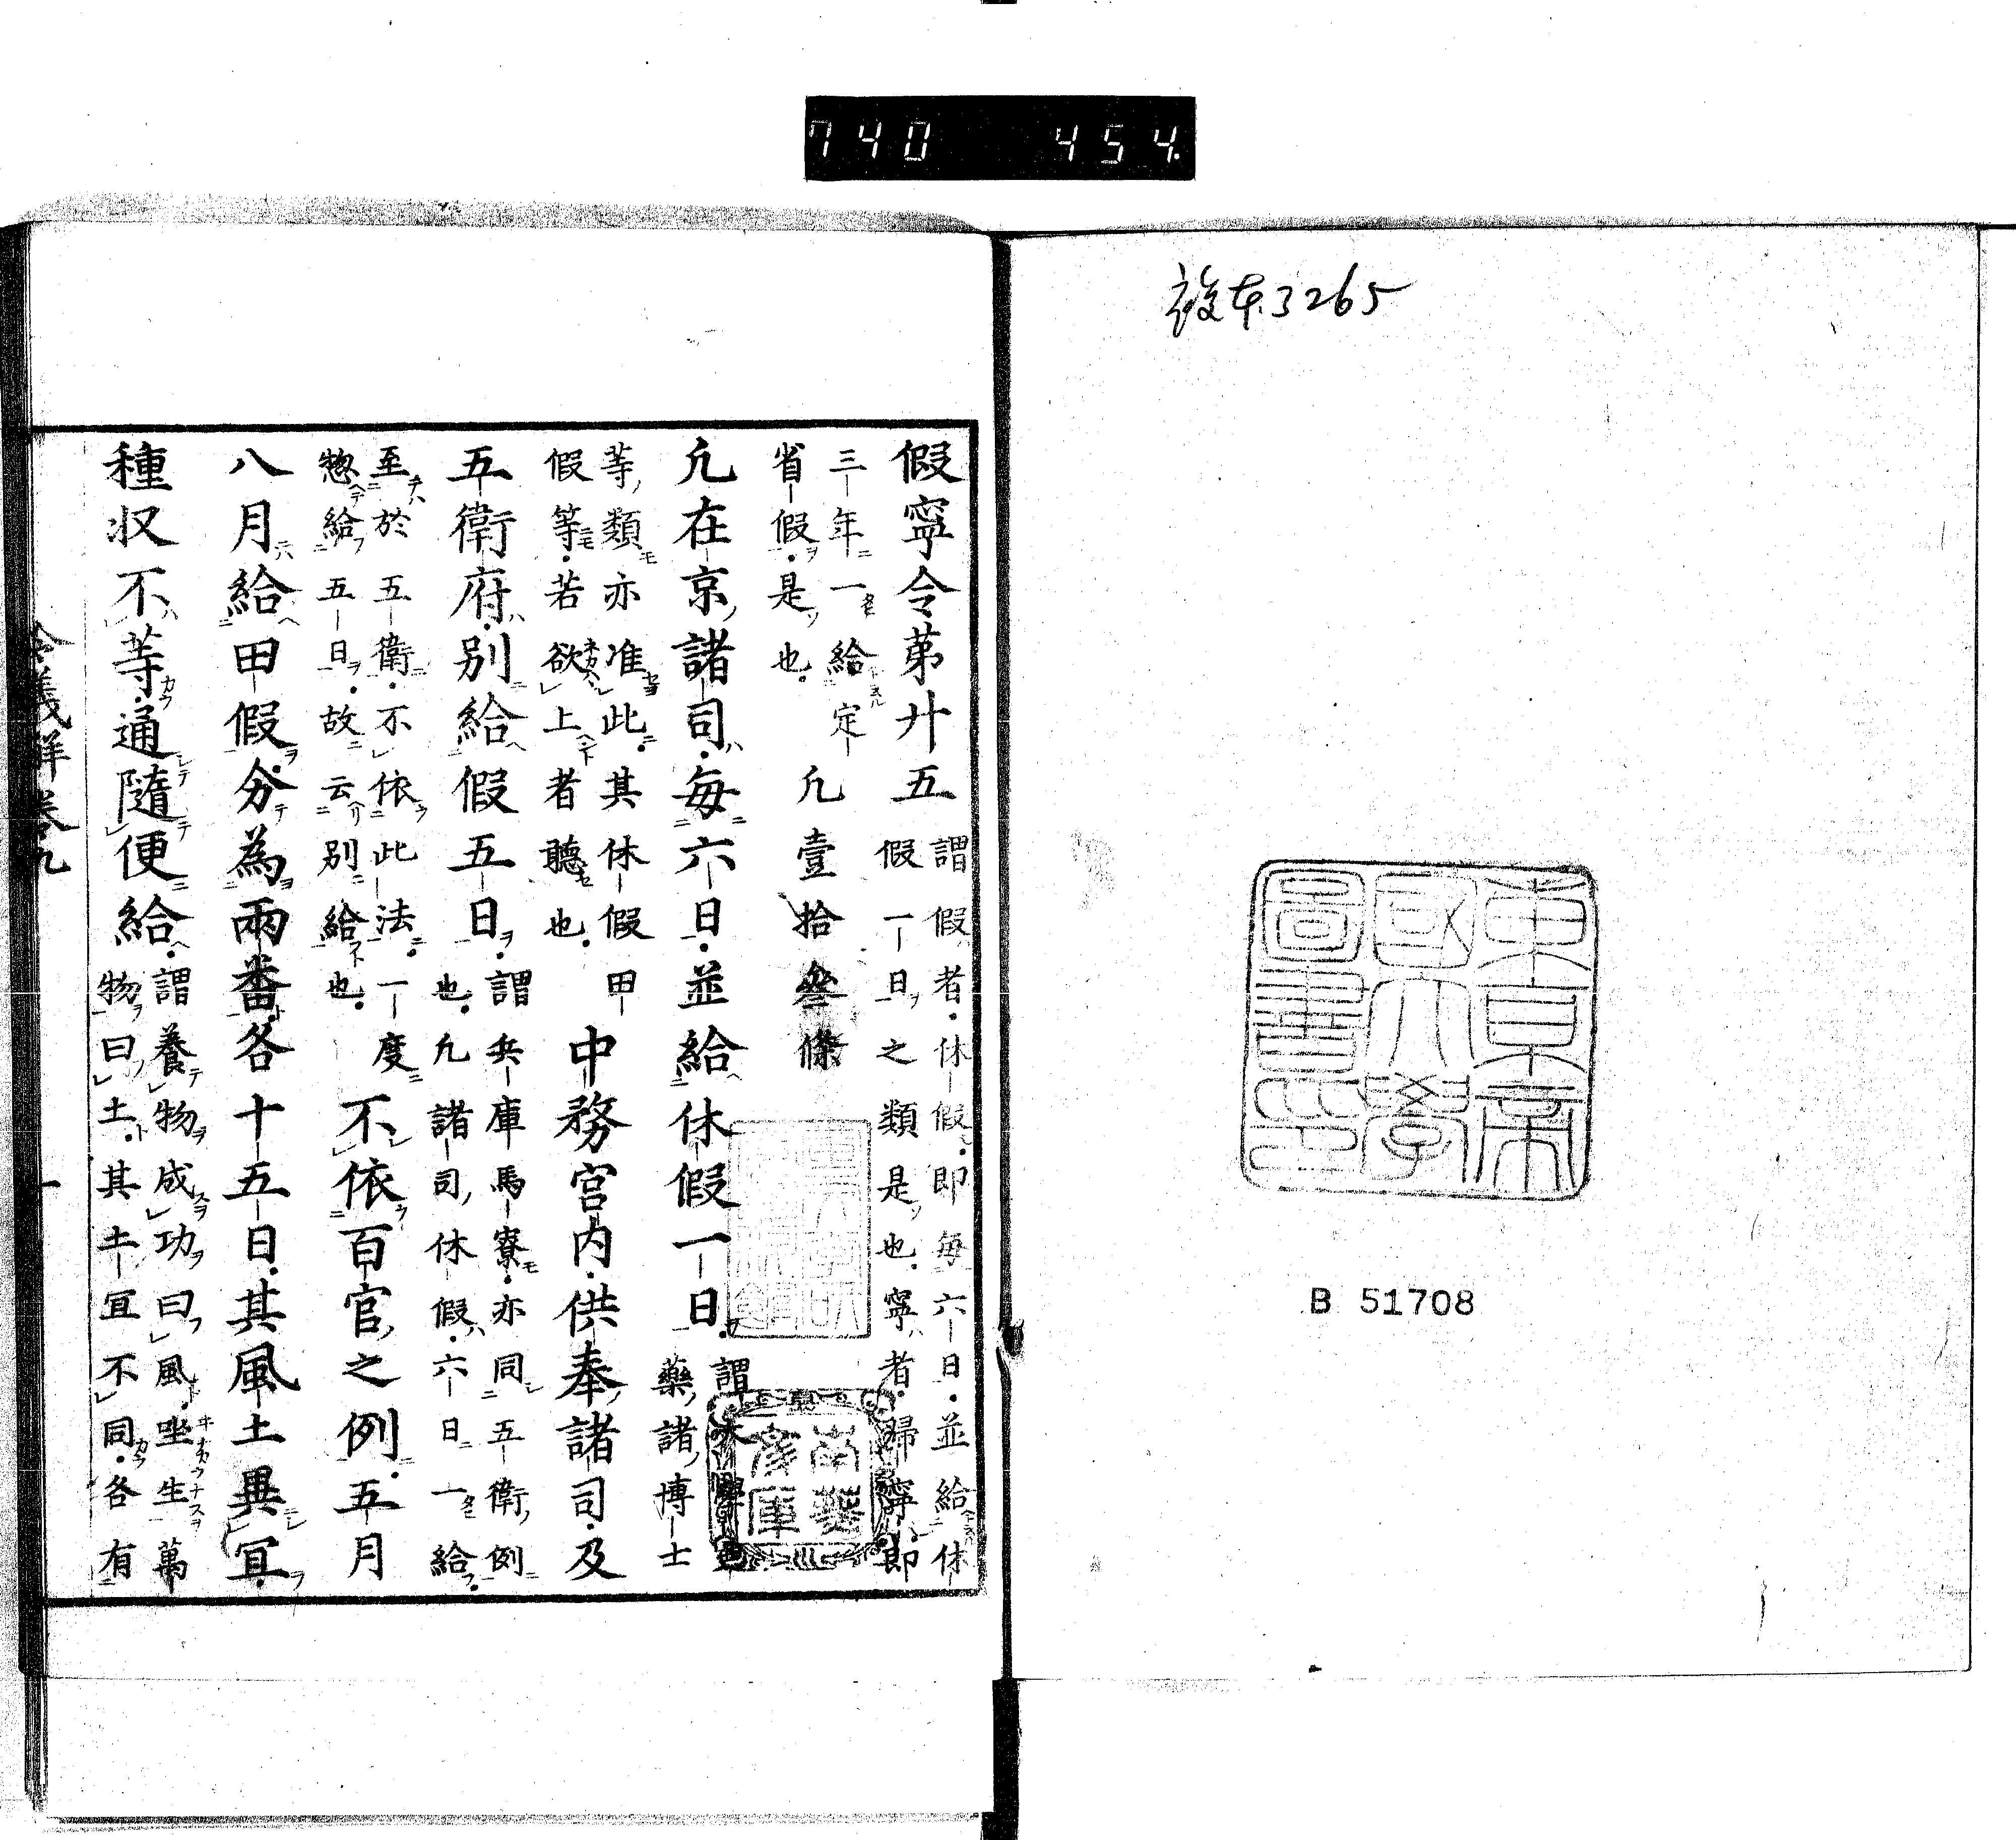 740 454.
複本3265
東京帝
國大學
圖書印
B 51708
假寧令第廿五謂假者休假即毎六日並給休
假一日之類是也寧者歸寧即
三年一給定
省假是也凡壹拾叄條
凡在京諸司毎六日並給休假一日謂大學典
藥諸博士
等類亦准此其休假田
假等若欲上者聽也中務宮内供奉諸司及
五衛府別給假五日謂兵庫馬寮亦同五衛例
也凡諸司休假六日一給
至於五衛不依此法一度
惣給五日故云別給也不依百官之例五月
八月給田假分為兩番各十五日其風土異宜
種収不等通隨便給謂養物成功曰風坐生萬
物曰土其土宜不同各有
令義解 卷九 一
南葵
文庫